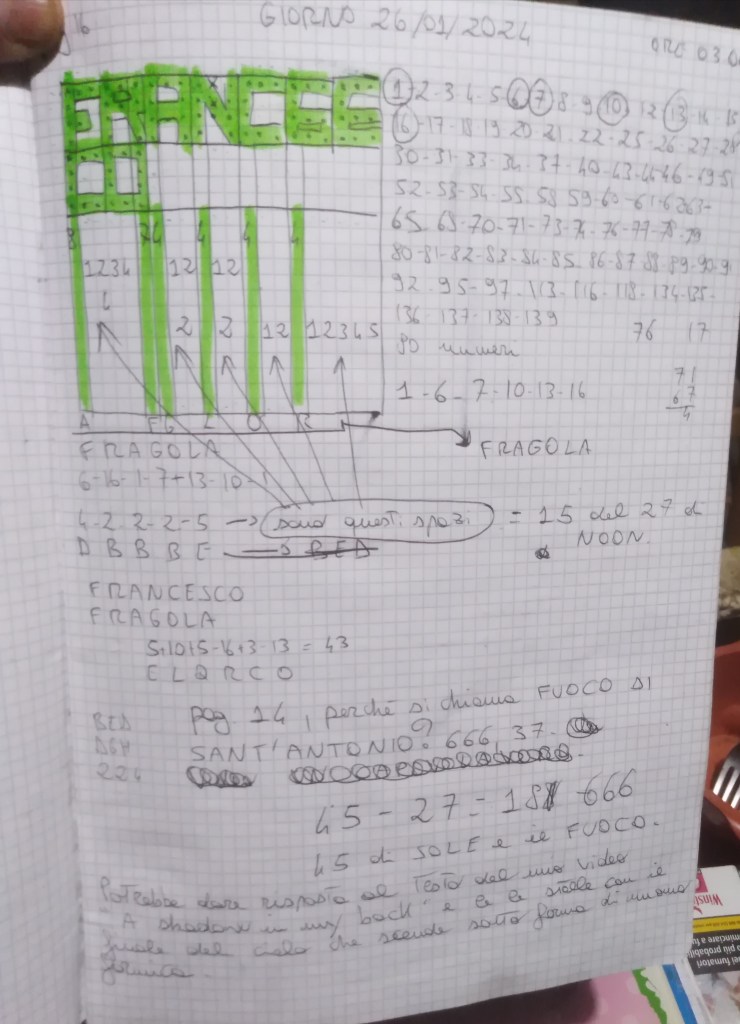 16
GIORNO 26/01/2024
ORE 03.0
FRANCESC
O
1-2-3-4-5-6-7-8-9-10-12-13-14-15
16-17-18-19-20-21-22-25-26-27-28
30-31-33-34-37-40-43-44-46-49-51
52-53-54-55-58-59-60-61-62-63-
65-68-70-71-73-74-76-77-78-79
80-81-82-83-84-85-86-87-88-89-90-9
92-95-97-113-116-118-134-135-
136-137-138-139
80 numeri
76 17
8 4 4 4
1234 12 12
4 2 2 12 12345
A F G L O R
1-6-7-10-13-16
71
67
4
FRAGOLA
FRAGOLA
6-16-1-7-13-10-
4-2-2-2-5 → sono questi spazi = 15 del 27 di
NOON.
D B B B E
FRANCESCO
FRAGOLA
5+10+5-16+3-13 = 43
E L A R C O
BED
pag 14, perché si chiama FUOCO DI
SANT'ANTONIO? 666, 37.
224
45-27=18 666
45 di SOLE e il FUOCO.
Potrebbe dare risposta al Testo del mio video
"A shadow in my back" e la le stelle con il
del cielo che scende sotto forma di